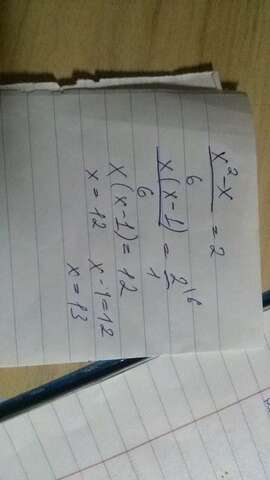 x²-x/6 = 2
x(x-1)/6 = 2\6/1
x(x-1)=12
x=12 x-1=12
x=13